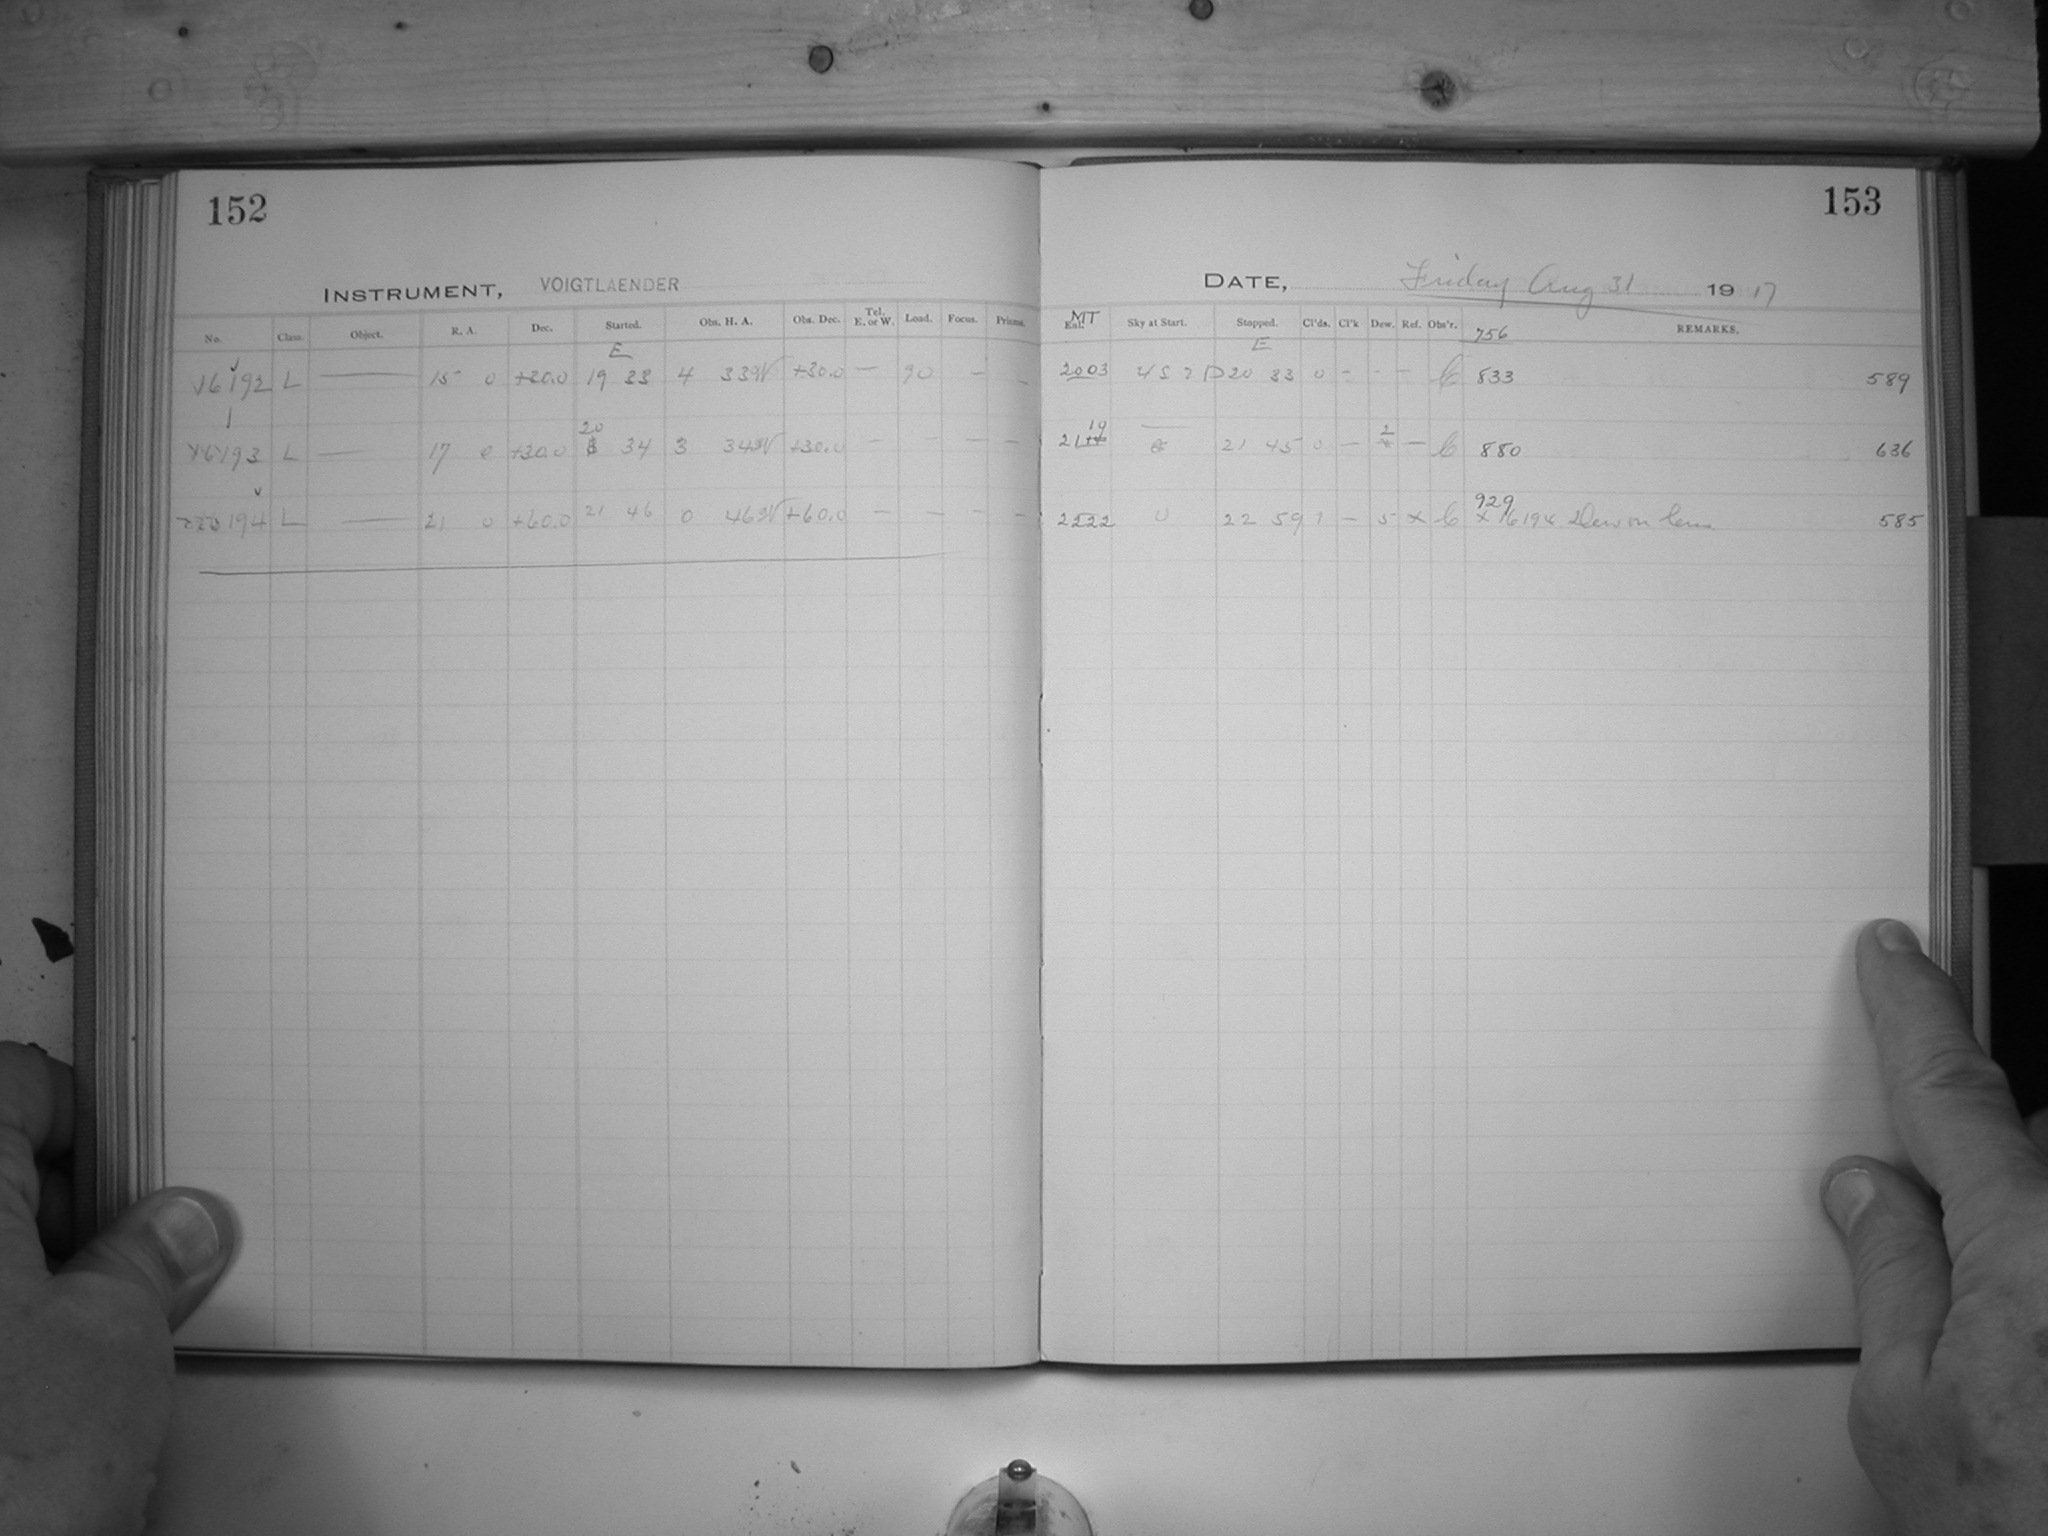 152
153
INSTRUMENT, VOIGTLAENDER
DATE, Friday Aug 31 1917
No. Class. Object. R. A. Dec. Started. Obs. H. A. Obs. Dec. Tel. E. or W. Load. Focus. Prisms. MT Sky at Start. Stopped. Cl'ds. Cl'k Dew. Ref. Obs'r. REMARKS.
E E 756
16192 L — 15 0 +30.0 19 33 4 33W +30.0 — 90 — — 2003 20 33 0 - - — 833 589
16193 L — 17 0 +30.0 20 34 3 34W +30.0 — — — — 21 19 21 45 0 — 2 — 880 636
194 L — 21 0 +60.0 21 46 0 46W +60.0 — — — — 2222 0 22 59 1 — 5 × 929 × 16194 Dew on lens 585